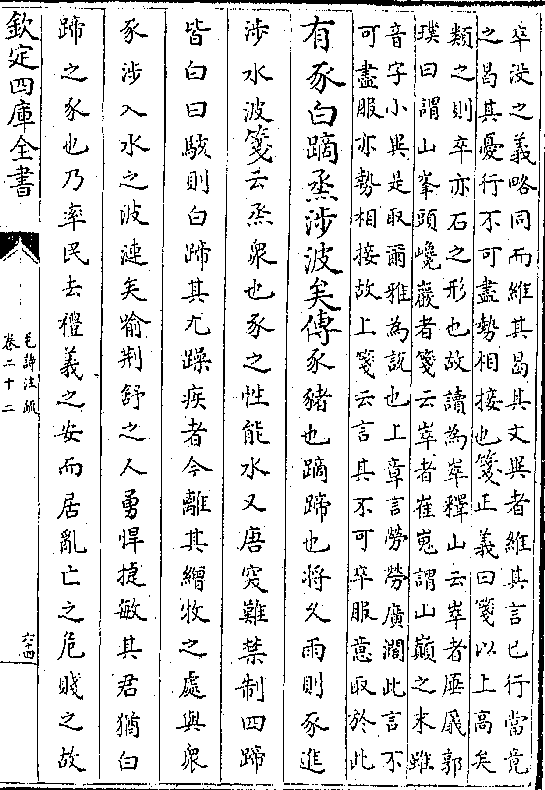 卒没之義略同而維其曷其文與者維其言已行當竟
之曷其憂行不可盡勢相接也箋正義曰箋以上高矣
類之則卒亦石之形也故讀為崒釋山云崒者厜㕒郭
璞曰謂山峯頭巉巖者箋云崒者崔嵬謂山巔之末雖
音字小異是取爾雅為説也上章言勞勞廣濶此言不
可盡服亦勢相接故上箋云言其不可卒服意取於此
有豕白蹢烝涉波矣傳豕豬也蹢蹄也將久雨則豕進
涉水波箋云烝衆也豕之性能水又唐突難禁制四蹄
皆白曰駭則白蹄其尤躁疾者今離其繒牧之處與衆
豕涉入水之波漣矣喻荆舒之人勇悍捷敏其君猶白
蹄之豕也乃率民去禮義之安而居亂亡之危賤之故
欽定四庫全書
毛詩注疏
卷二十二
六四